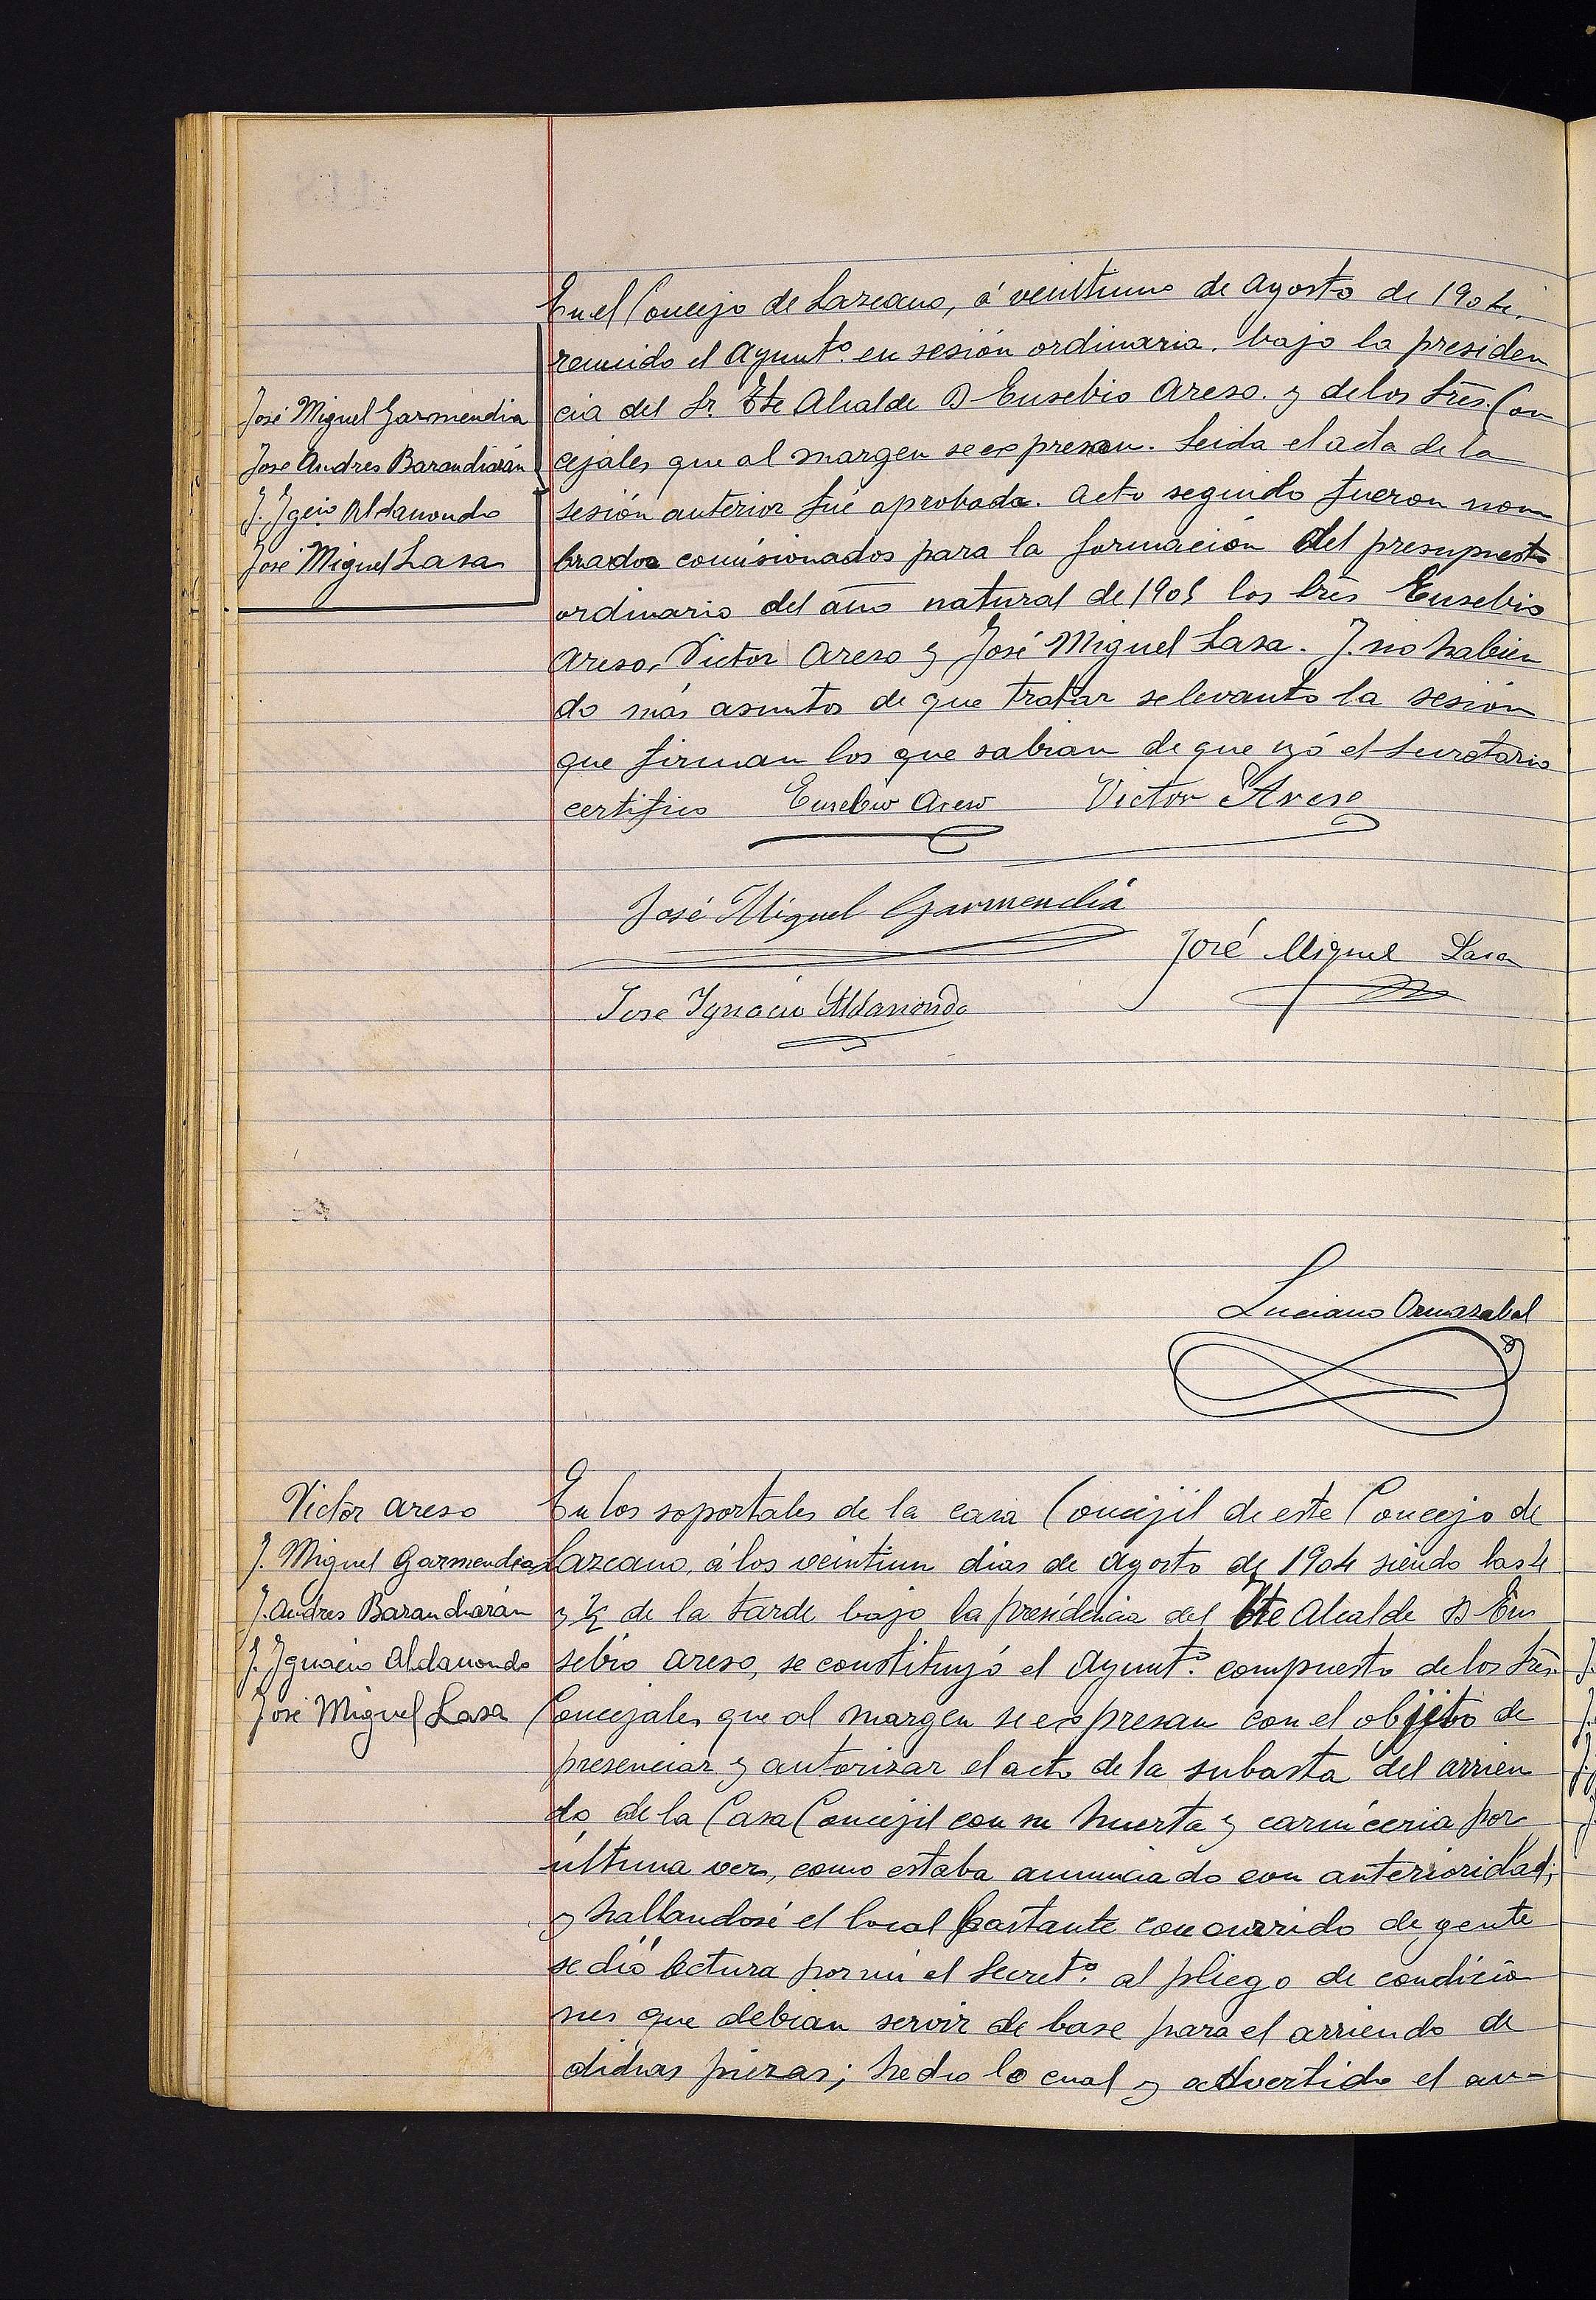 En el Concejo de Lazcano, á veintiuno de Agosto de 1904.
reunido el Ayuntº. en sesión ordinaria. bajo la presiden
José Miguel Garmendia
cia del Sr. Tte Alcalde D Eusebio Areso. y de los Sres. Con
José Andres Barandiarán
cejales que al margen se expresan. Leida el acta de la
J. Igcio Aldanondo
sesión anterior fué aprobada. Acto seguido fueron nom
José Miguel Lasa
brados comisionados para la formación del presupuesto
ordinario del año natural de 1905 los Sres Eusebio
Areso, Victor Areso y José Miguel Lasa. Y no habien
do más asuntos de que tratar se levantó la sesión
que firman los que sabian de que yó el Secretario
certifico Eusebio Areso Victor Areso
José Miguel Garmendia
José Miguel Lasa
Jose Ignacio Aldanondo
Luciano Ormazabal
Victor Areso
En los soportales de la casa Concejil de este Concejo de
J. Miguel Garmendia
Lazcano, á los veintiun dias de Agosto de 1904 siendo las 4
J. Andres Barandiarán
y ½ de la tarde bajo la presidencia del Tte Alcalde D Eu
J. Ignacio Aldanondo
sebio Areso, se constituyó el Ayuntº. compuesto de los Sres
José Miguel Lasa
Concejales que al margen se expresan con el objeto de
presenciar y autorizar el acto de la subasta del arrien
do de la Casa Concejil con su huerta y carniceria por
última vez, como estaba anunciado con anterioridad;
y hallandosé el local bastante concurrido de gente
se dió lectura por mi el Secretº. al pliego de condicio
nes que debian servir de base para el arriendo de
dichas piezas; hecho lo cual y advertido el au-